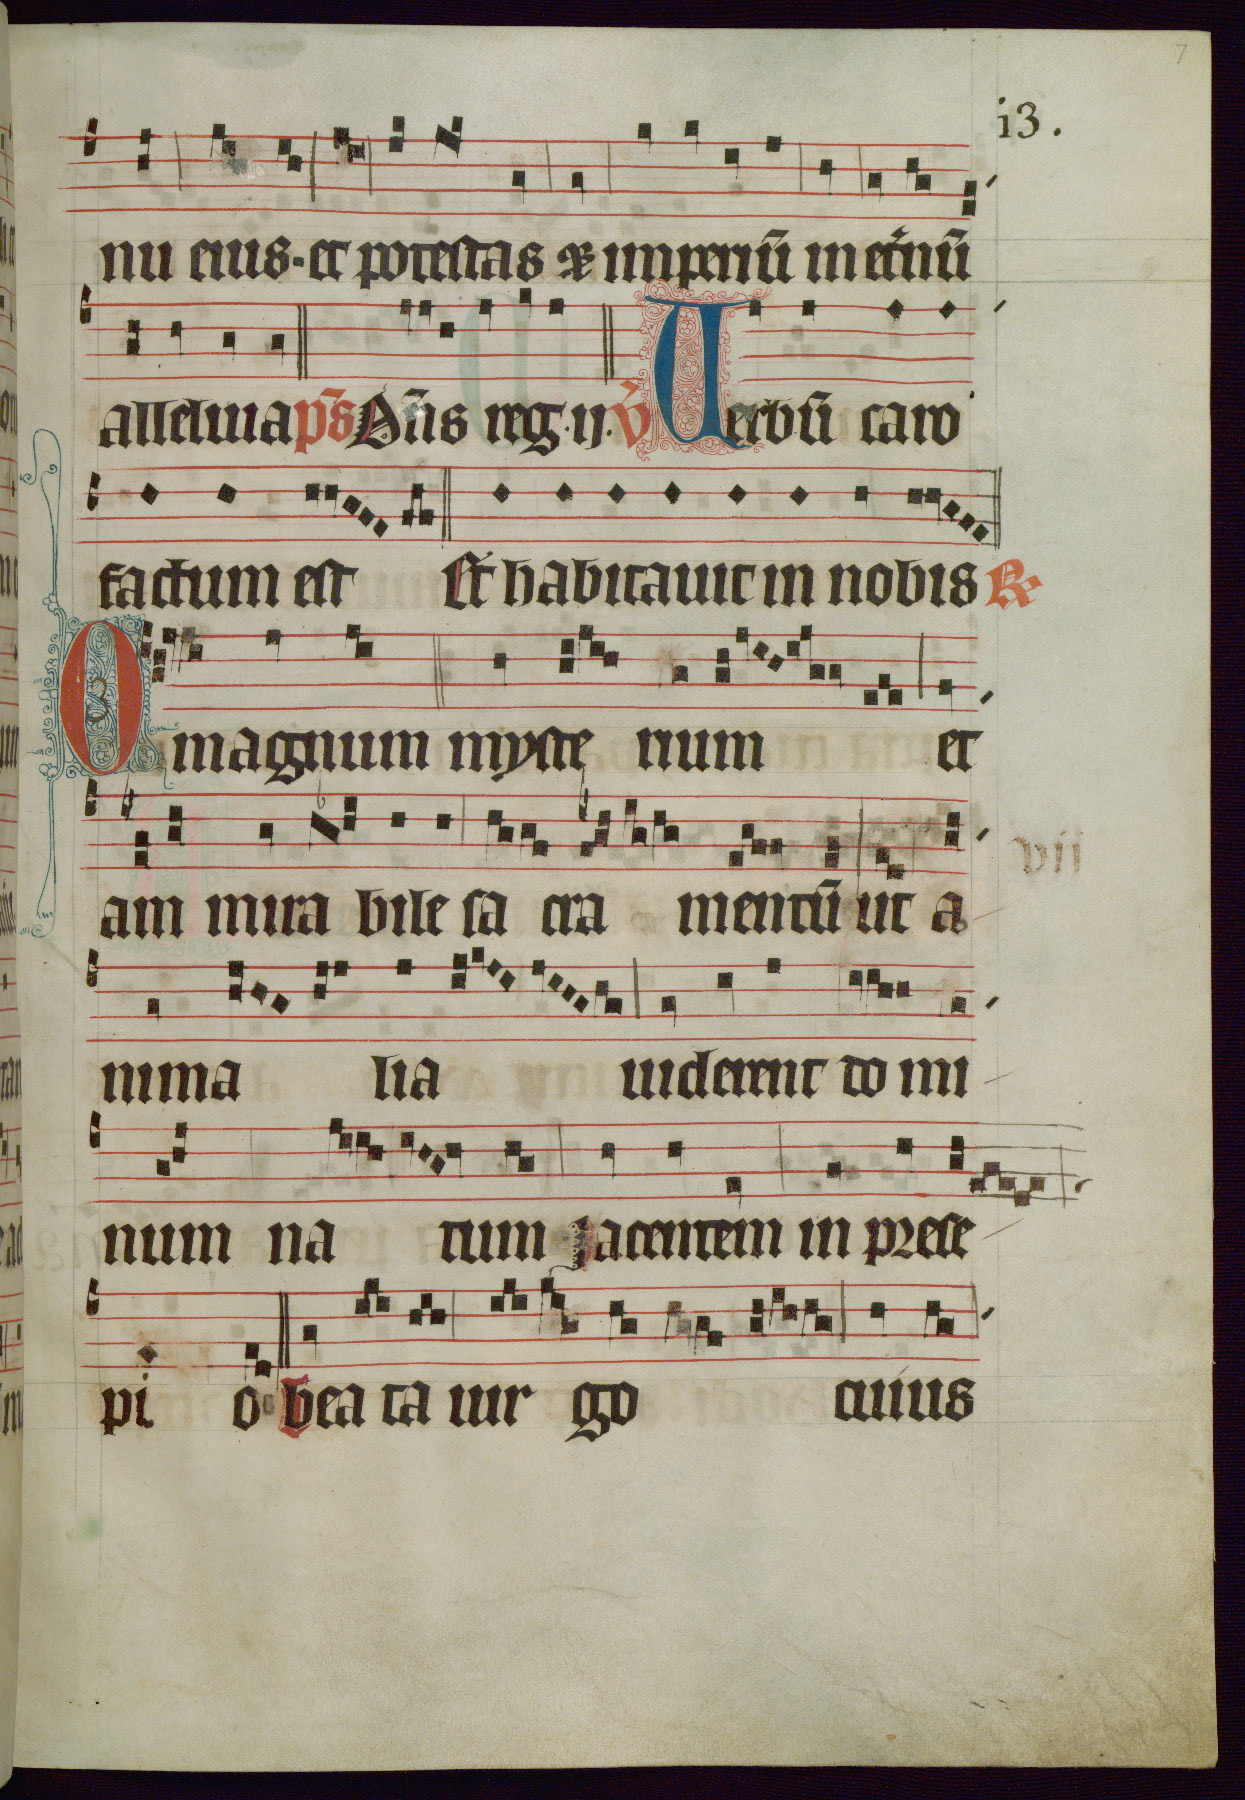 7
i3.
nu eius. et potestas & imperiū in et̄nū
alleluia p̄s Dn̄s reg. ij. v̄ Verbū caro
factum est Et habitauit in nobis R
O magnum myste rium et
am mira bile sa cra mentū ut a
nima lia uiderent do mi
num na tum iacentem in prese
pi o Bea ta uir go cuius